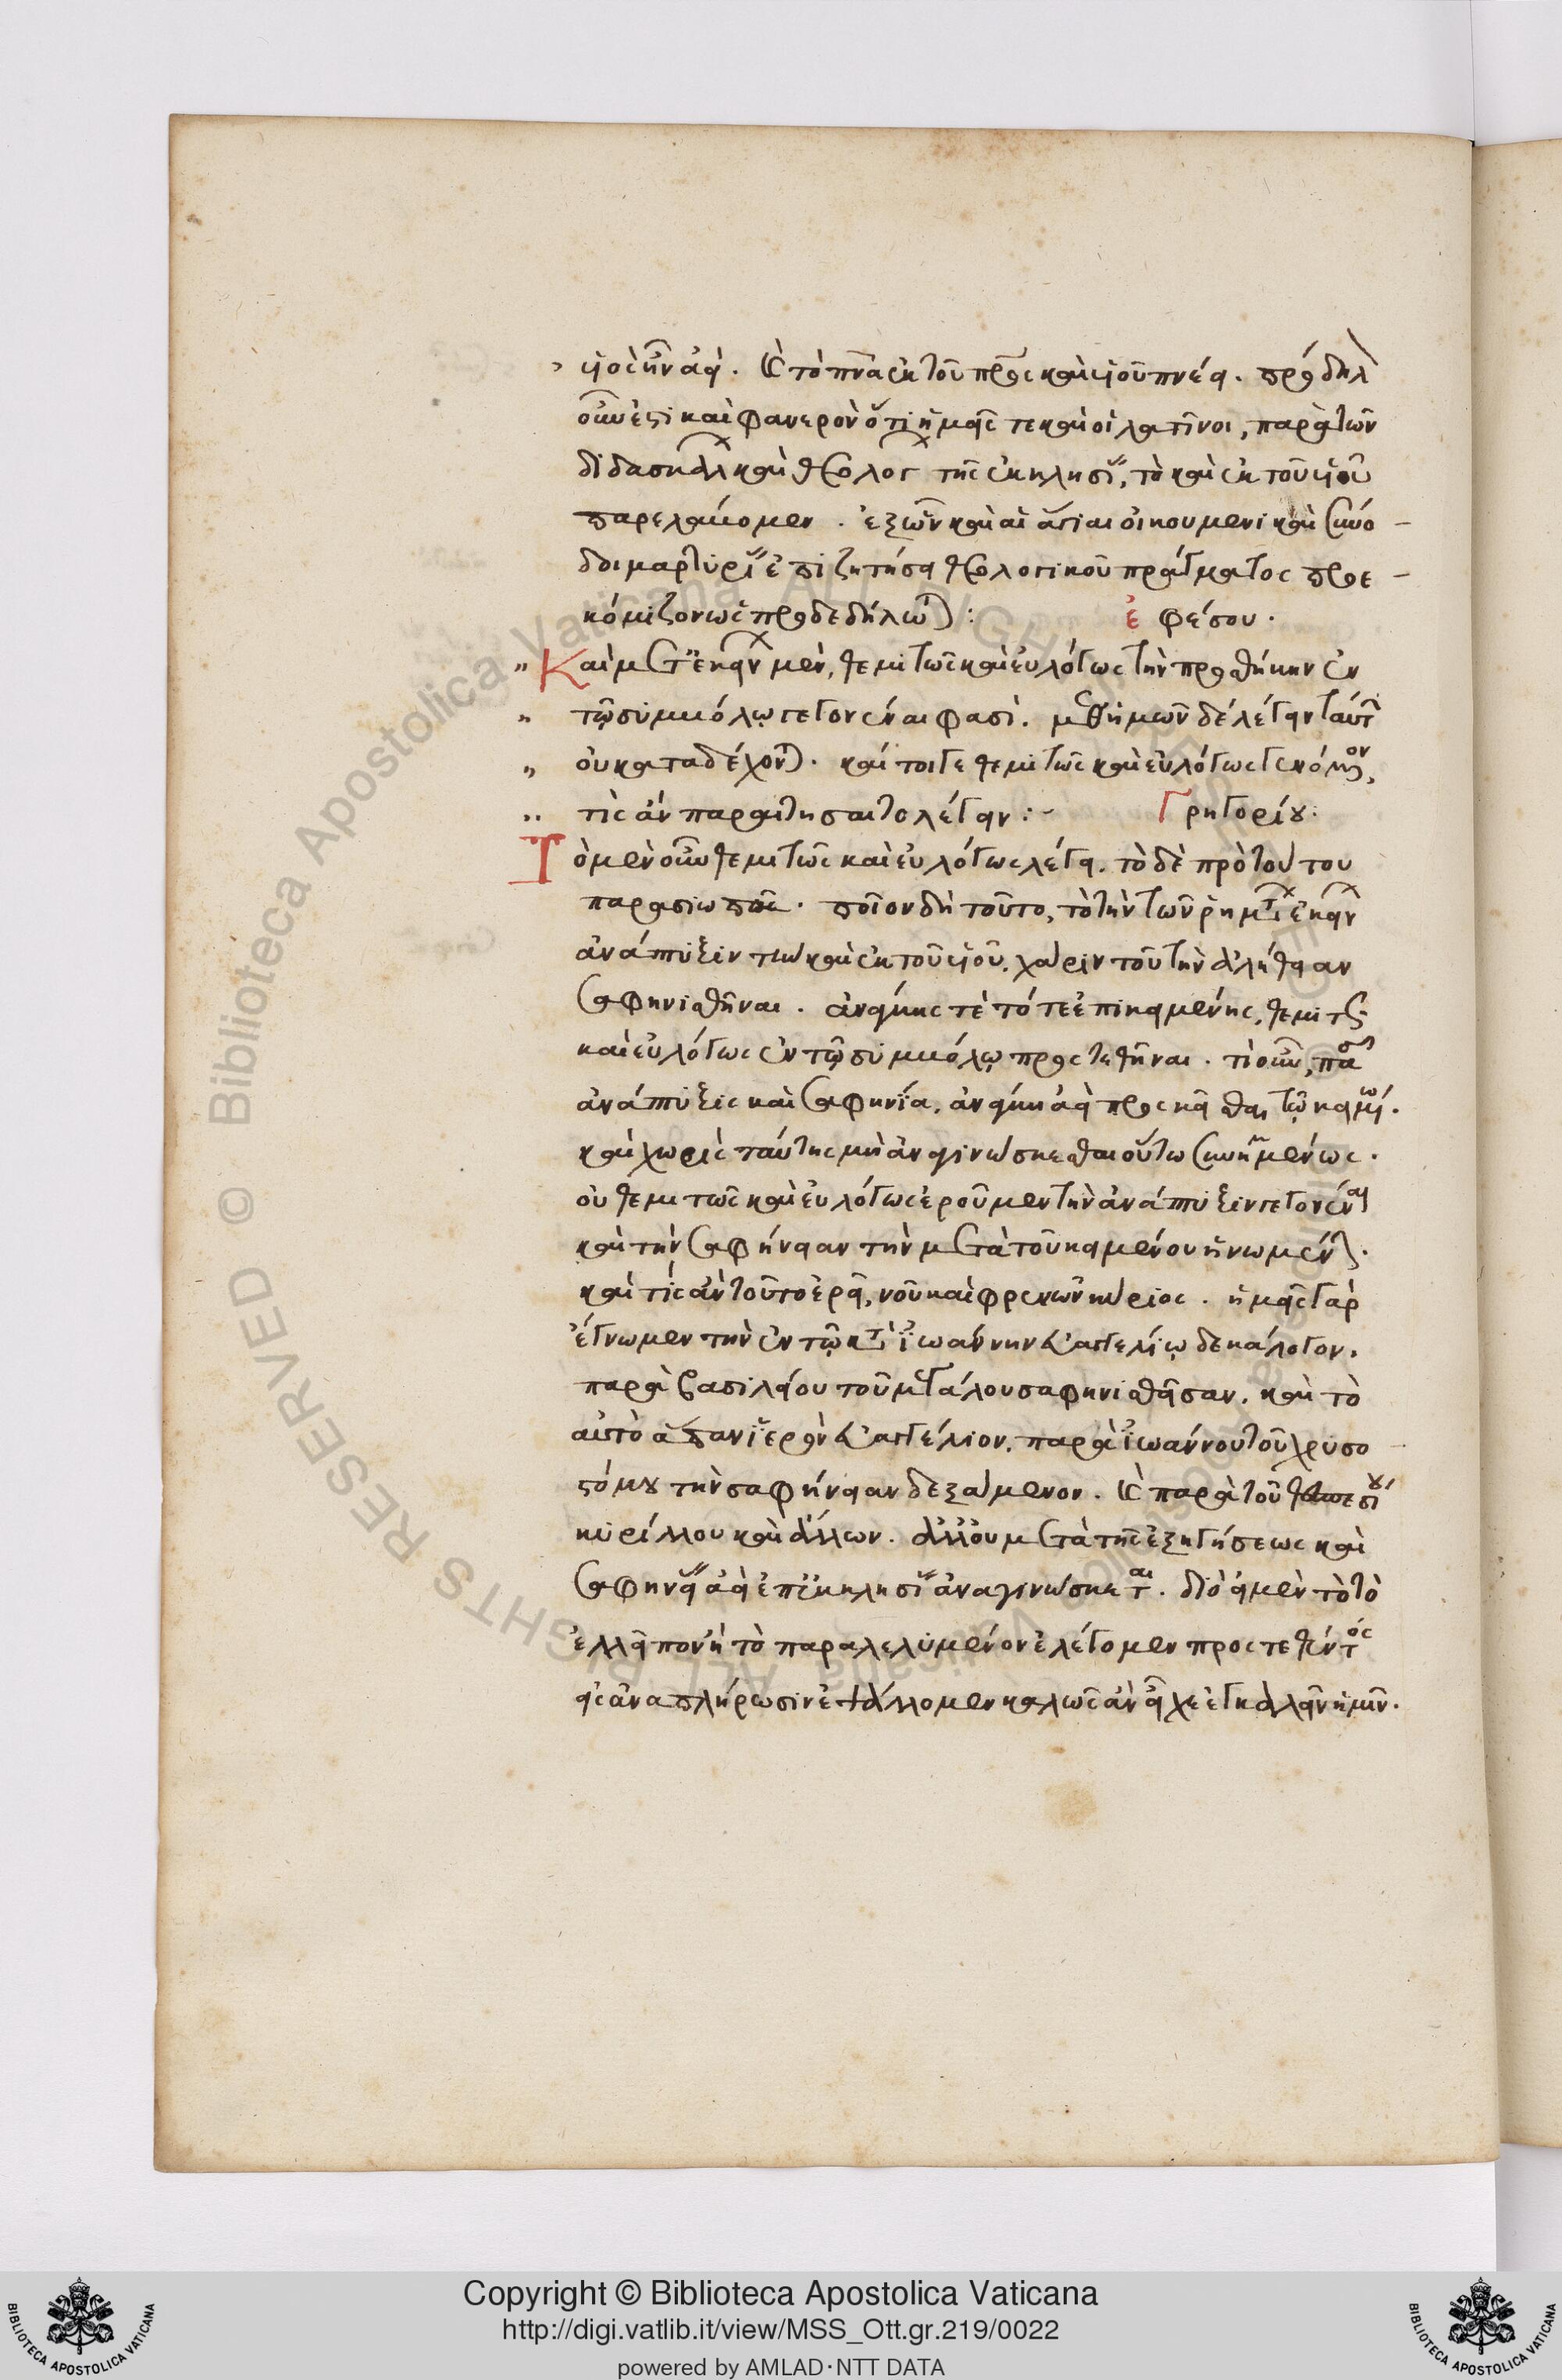 υἱὸς ἦν ἀεί. καὶ τὸ πνα ἐκ τοῦ πρς καὶ υἱοῦ πνέει. πρόδηλ
οὖν ἐστι καὶ φανερὸν ὅτι ἡμεῖς τε καὶ οἱ λατῖνοι, παρὰ τῶν
διδασκάλ καὶ θεολογ τῆς ἐκκλησί, τὸ καὶ ἐκ τοῦ υἱοῦ
παρελάβομεν. ἐξ ὧν καὶ αἱ ἅγιαι οἰκουμενικαὶ σύνο-
δοι μαρτυρί ἐπιζητήσει θεολογικοῦ πράγματος προε-
κόμιζον ὡς προδεδήλωται: ἐφέσου.
Καὶ μετ' ἐκεῖν μὲν, θεμιτῶς καὶ εὐλόγως τὴν προσθήκην ἐν
τῷ συμβόλῳ γεγονέναι φασί. μεθ' ἡμῶν δὲ λέγειν ταύτ
οὐ καταδέχονται. καίτοιγε θεμιτῶς καὶ εὐλόγως γενόμενον,
τίς ἂν παραιτήσαιτο λέγειν:- Γρηγορίου.
Τὸ μὲν οὖν θεμιτῶς καὶ εὐλόγως λέγει. τὸ δὲ πρὸ τούτου
παρασιωπᾶ. ποῖον δὴ τοῦτο, τὸ τὴν τῶν ῥημάτ ἐκείν
ἀνάπτυξιν τὴν καὶ ἐκ τοῦ υἱοῦ, χάριν τοῦ τὴν ἀλήθειαν
σαφηνισθῆναι. ἀνάγκης τὲ τότε ἐπικειμένης, θεμιτῶς
καὶ εὐλόγως ἐν τῷ συμβόλῳ προστεθῆναι. τί οὖν, πᾶσ
ἀνάπτυξις καὶ σαφηνία, ἀνάγκη ἀεὶ προσκεῖσθαι τῷ κειμένῳ.
καὶ χωρὶς ταύτης μὴ ἀναγινώσκεσθαι οὕτω συνημμένως.
οὐ θεμιτῶς καὶ εὐλόγως ἐροῦμεν τὴν ἀνάπτυξιν γεγονέναι
καὶ τὴν σαφήνειαν τὴν μετὰ τοῦ κειμένου ἡνωμέν.
καὶ τίς ἂν τοῦτο ἐρεῖ, νοῦ καὶ φρενῶν κύριος. ἡμεῖς γὰρ
ἔγνωμεν τὴν ἐν τῷ κατὰ ἰωάννην εὐαγγελίῳ δεκάλογον,
παρὰ βασιλείου τοῦ μεγάλου σαφηνισθεῖσαν. καὶ τὸ
αὐτὸ ἅπαν ἱερὸν εὐαγγέλιον, παρὰ ἰωάννου τοῦ χρυσο
στόμου τὴν σαφήνειαν δεξάμενον. καὶ παρὰ τοῦ θεσπεσίου
κυρίλλου καὶ ἄλλων. ἀλλ' οὐ μετὰ τῆς ἐξηγήσεως καὶ
σαφηνεί ἀεὶ ἐπ' ἐκκλησί ἀναγινώσκεται. διὸ εἰ μὲν τὸ τὸ
ἐλλεῖπον ἢ τὸ παραλελυμένον ἐλέγομεν προστεθέντος
εἰς ἀναπλήρωσιν ἐψάλλομεν καλῶς ἂν εἶχε ἐγκαλεῖν ἡμῖν.
Copyright © Biblioteca Apostolica Vaticana
http://digi.vatlib.it/view/MSS_Ott.gr.219/0022
powered by AMLAD·NTT DATA